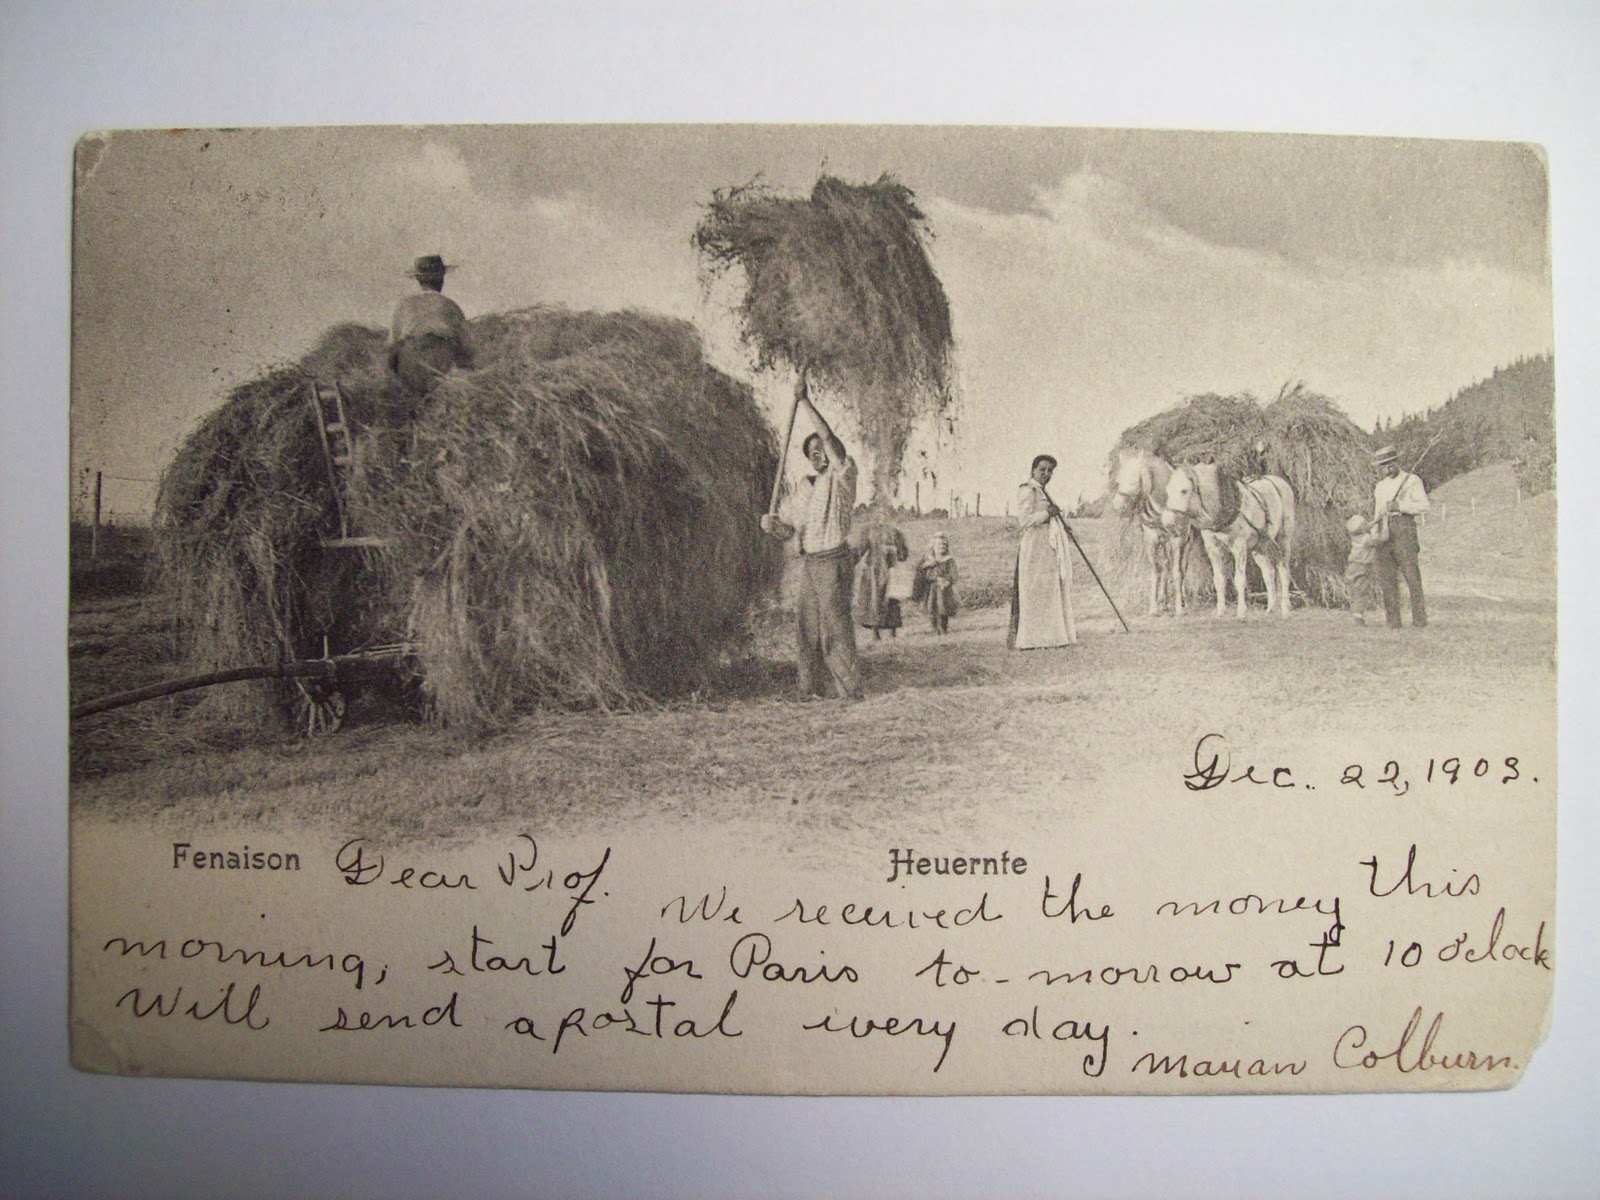 Dec. 22, 1903.
Fenaison
Heuernte
Dear Prof.
We received the money this
morning, start for Paris to-morrow at 10 o'clock
Will send a postal every day.
Marian Colburn.